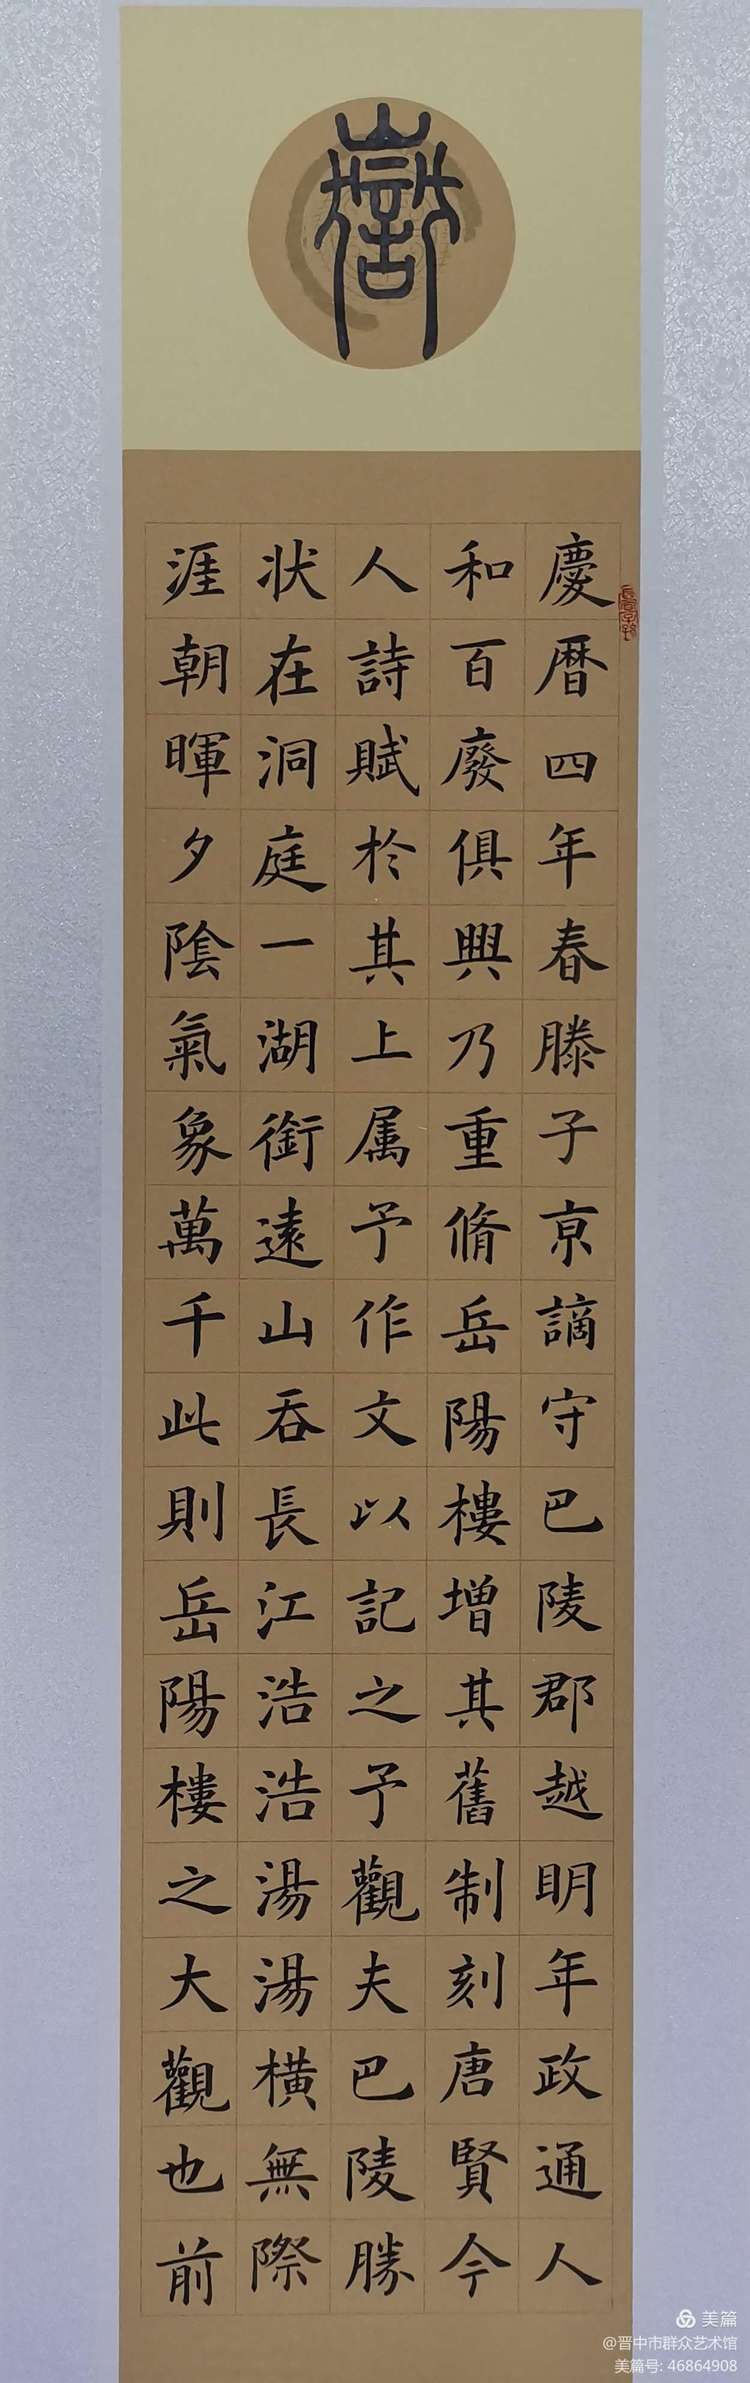 嶽
慶曆四年春滕子京謫守巴陵郡越明年政通人
和百廢俱興乃重脩岳陽樓增其舊制刻唐賢今
人詩賦於其上属予作文以記之予觀夫巴陵勝
状在洞庭一湖銜遠山吞長江浩浩湯湯橫無際
涯朝暉夕陰氣象萬千此則岳陽樓之大觀也前
美篇
@晋中市群众艺术馆
美篇号: 46864908